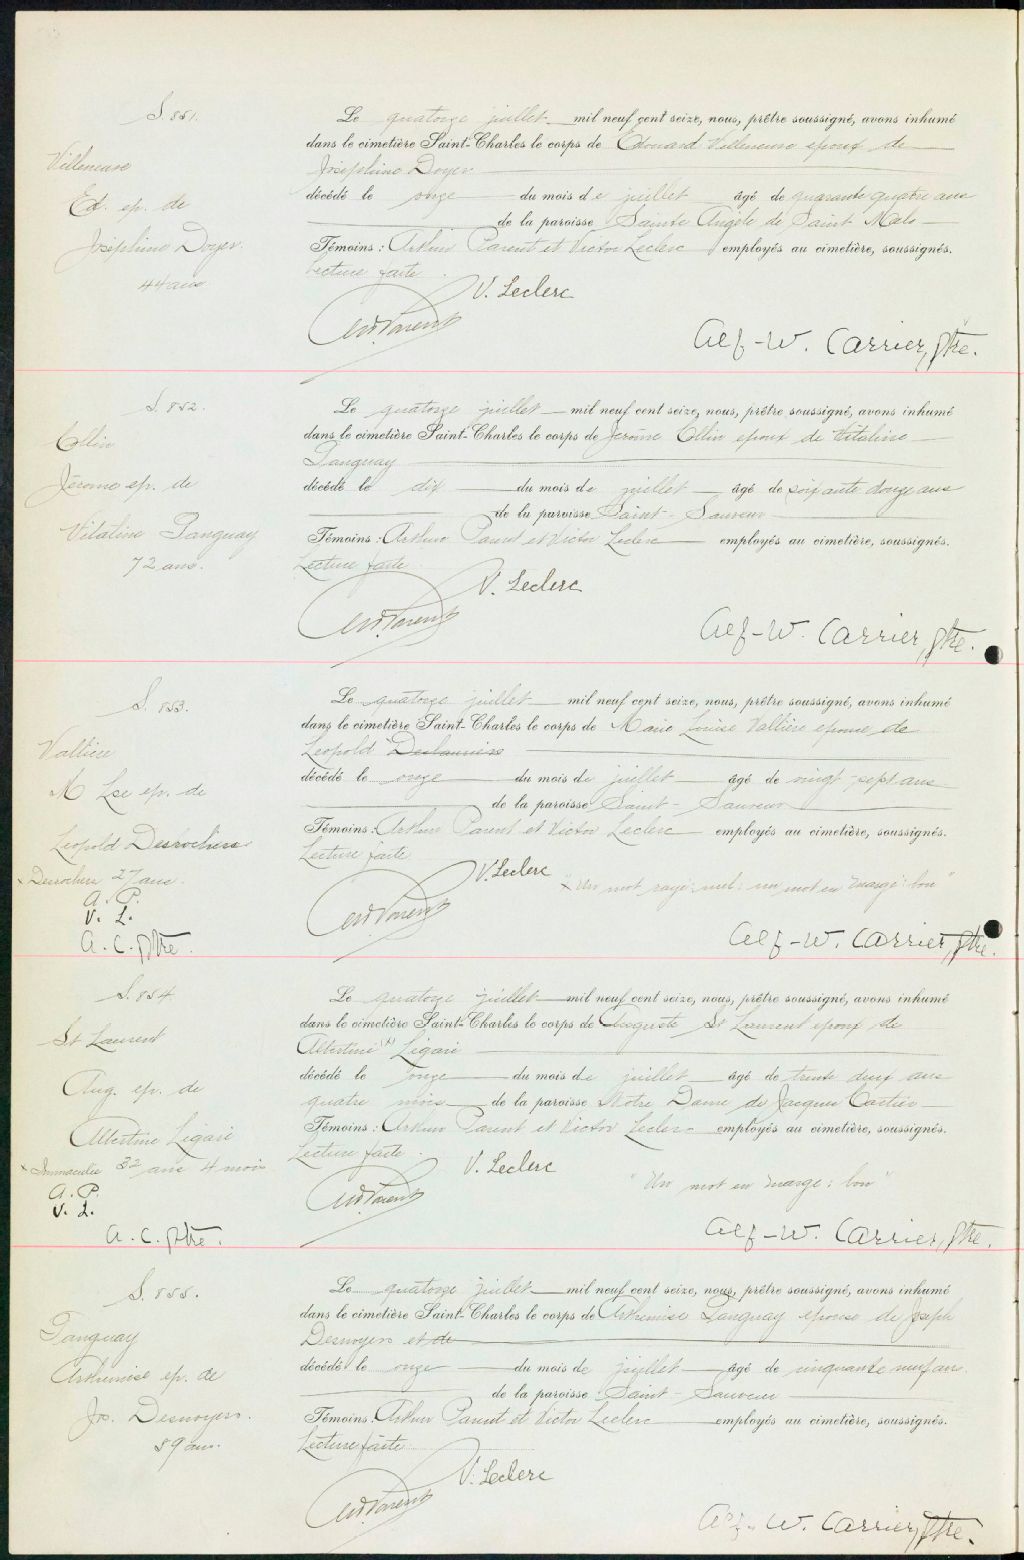 S. 851.
Villeneuve
Ed. ep. de
Joséphine Doyer.
44 ans
Le quatorze juillet mil neuf cent seize, nous, prêtre soussigné, avons inhumé
dans le cimetière Saint-Charles le corps de Edouard Villeneuve epoux de
Joséphine Doyer
décédé le onze du mois de juillet âgé de quarante quatre ans
de la paroisse Sainte Angèle de Saint Malo
Témoins : Arthur Parent et Victor Leclerc employés au cimetière, soussignés.
Lecture faite.
V. Leclerc
Art. Parent
Alf-W. Carrier, ptre.
S. 852.
Jérome ep. de
Vitaline Tanguay
72 ans.
Le quatorze juillet mil neuf cent seize, nous, prêtre soussigné, avons inhumé
dans le cimetière Saint-Charles le corps de Jerome epoux de Vitaline
Tanguay
décédé le dix du mois de juillet âgé de soixante douze ans
de la paroisse Saint-Sauveur
Témoins : Arthur Parent et Victor Leclerc employés au cimetière, soussignés.
Lecture faite.
V. Leclerc
Art. Parent
Alf-W. Carrier, ptre.
S. 853.
Vallière
M Lse ep. de
Leopold Desrochers
x Desrochers 27 ans.
A. P.
V. L.
A. C. ptre.
Le quatorze juillet mil neuf cent seize, nous, prêtre soussigné, avons inhumé
dans le cimetière Saint-Charles le corps de Marie Louise Vallière epouse de
Leopold Deslauriers
décédé le onze du mois de juillet âgé de vingt-sept ans
de la paroisse Saint-Sauveur
Témoins : Arthur Parent et Victor Leclerc employés au cimetière, soussignés.
Lecture faite
V. Leclerc
"x Un mot rayé: nul: un mot en marge: bon"
Art. Parent
Alf-W. Carrier, ptre.
S. 854
St Laurent
Aug. ep. de
Albertine Légaré
x Immaculée 32 ans 4 mois
A. P.
V. L.
A. C. ptre.
Le quatorze juillet mil neuf cent seize, nous, prêtre soussigné, avons inhumé
dans le cimetière Saint-Charles le corps de Auguste St Laurent epoux de
Albertine (x) Légaré
décédé le onze du mois de juillet âgé de trente deux ans
quatre mois de la paroisse Notre Dame de Jacques Cartier
Témoins : Arthur Parent et Victor Leclerc employés au cimetière, soussignés.
Lecture faite.
V. Leclerc
"Un mot en marge: bon"
Art. Parent
Alf-W. Carrier, ptre.
S. 855.
Tanguay
Arthémise ep. de
Jos. Desnoyers.
59 ans.
Le quatorze juillet mil neuf cent seize, nous, prêtre soussigné, avons inhumé
dans le cimetière Saint-Charles le corps de Arthemise Tanguay epouse de Joseph
Desnoyers et de
décédé le onze du mois de juillet âgé de cinquante neuf ans
de la paroisse Saint-Sauveur
Témoins : Arthur Parent et Victor Leclerc employés au cimetière, soussignés.
Lecture faite
V. Leclerc
Art. Parent
Alf-W. Carrier, ptre.